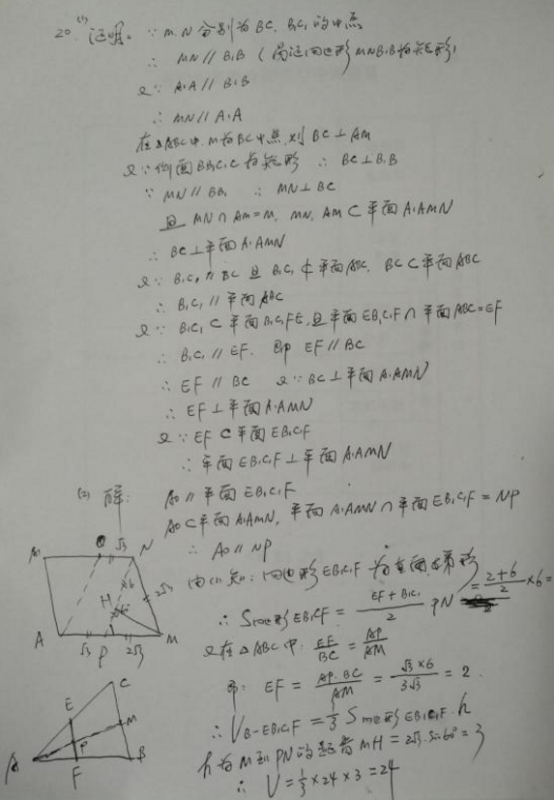 20. (1) 证明。∵ M.N 分别为 BC. B₁C₁ 的中点
∴ MN // B₁B
又∵ A₁A // B₁B
∴ MN // A₁A
在△ABC中. M为BC中点. 则 BC⊥AM
又∵侧面BB₁C₁C为矩形 ∴ BC⊥B₁B
∵ MN // BB₁ ∴ MN⊥BC
且 MN∩AM=M. MN, AM⊂平面A₁AMN
∴ BC⊥平面A₁AMN
又∵ B₁C₁ // BC 且 B₁C₁⊄平面ABC. BC⊂平面ABC
∴ B₁C₁ // 平面ABC
又∵ B₁C₁⊂平面B₁C₁FE, 且平面EB₁C₁F∩平面ABC=EF
∴ B₁C₁ // EF. 即 EF // BC
∴ EF // BC 又∵ BC⊥平面A₁AMN
∴ EF⊥平面A₁AMN
又∵ EF⊂平面EB₁C₁F
∴ 平面EB₁C₁F⊥平面A₁AMN
(2) 解: AO // 平面EB₁C₁F
AO⊂平面A₁AMN, 平面A₁AMN∩平面EB₁C₁F=NP
∴ AO // NP
由(1)知: 四边形EB₁C₁F为 梯形
∴ S四边形EB₁C₁F = (EF+B₁C₁)/2 · PN = (2+6)/2 ×6=
又在△ABC中. EF/BC = AP/AM
即: EF = AP·BC/AM = √3×6/3√3 = 2.
∴ V B-EB₁C₁F = 1/3 S四边形EB₁C₁F · h
h为M到PN的距离 MH=2√3.sin60°=3
∴ V= 1/3 ×24×3=24
A₁ O √3 N
H 6 60° 2√3
A √3 P 2√3 M
C
E M
P
A F B